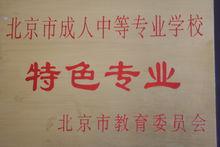 北京市成人中等专业学校
特色专业
北京市教育委员会